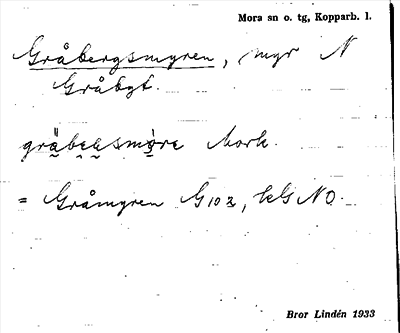 Mora sn o. tg, Kopparb. l.
Gråbergsmyren, myr N
Gråbgt.
Mork.
= Gråmyren G102, kG NO.
Bror Lindén 1933